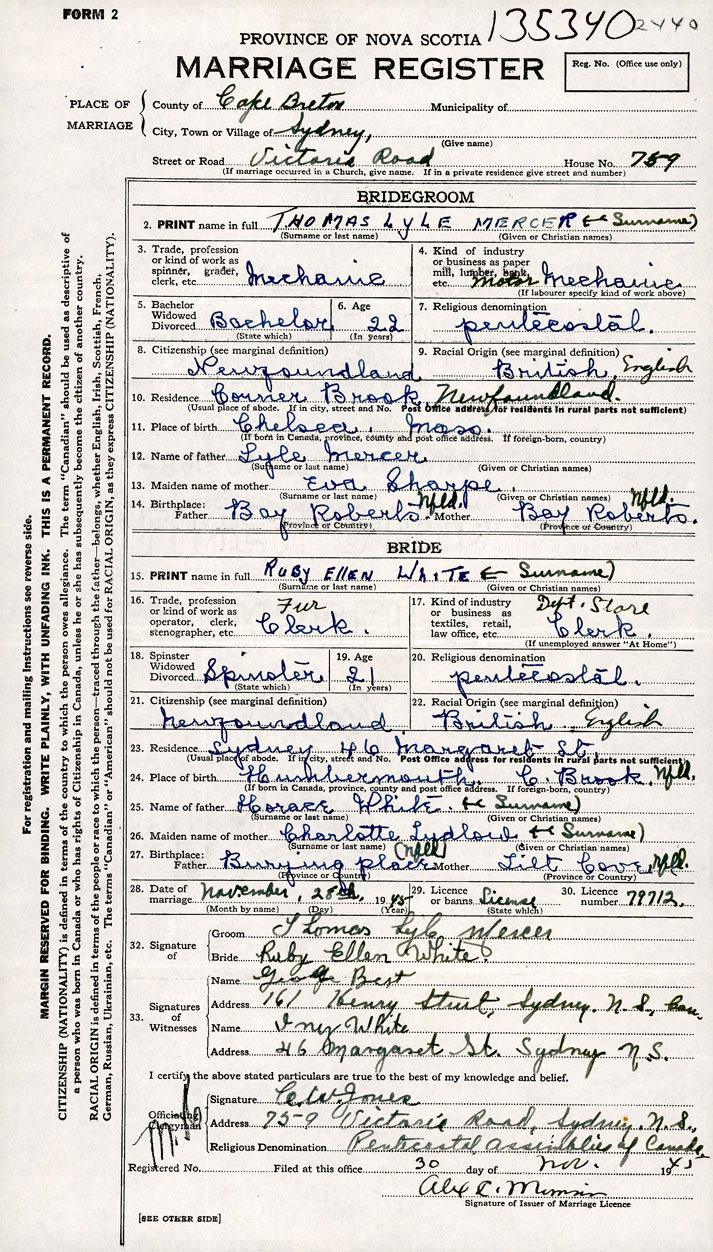 FORM 2
135340 2440
PROVINCE OF NOVA SCOTIA
MARRIAGE REGISTER
Reg. No. (Office use only)
PLACE OF MARRIAGE
County of Cape Breton Municipality of
City, Town or Village of Sydney,
(Give name)
Street or Road Victoria Road House No. 759
(If marriage occurred in a Church, give name. If in a private residence give street and number)
BRIDEGROOM
2. PRINT name in full THOMAS LYLE MERCER (← Surname)
(Surname or last name) (Given or Christian names)
3. Trade, profession or kind of work as spinner, grader, clerk, etc. Mechanic
4. Kind of industry or business as paper mill, lumber, bank, etc. Motor Mechanic
(If labourer specify kind of work above)
5. Bachelor Widowed Divorced Bachelor (State which)
6. Age 22 (In years)
7. Religious denomination pentecostal.
8. Citizenship (see marginal definition) Newfoundland
9. Racial Origin (see marginal definition) British English
10. Residence Corner Brook, Newfoundland.
(Usual place of abode. If in city, street and No. Post Office address for residents in rural parts not sufficient)
11. Place of birth Chelsea, Mass.
(If born in Canada, province, county and post office address. If foreign-born, country)
12. Name of father Lyle Mercer
(Surname or last name) (Given or Christian names)
13. Maiden name of mother Eva Sharpe
(Surname or last name) (Given or Christian names)
14. Birthplace: Father Bay Roberts Nfld. Mother Bay Roberts. Nfld.
(Province or Country) (Province or Country)
BRIDE
15. PRINT name in full RUBY ELLEN WHITE (← Surname)
(Surname or last name) (Given or Christian names)
16. Trade, profession or kind of work as operator, clerk, stenographer, etc. Fur Clerk.
17. Kind of industry or business as textiles, retail, law office, etc. Dept. Store Clerk.
(If unemployed answer "At Home")
18. Spinster Widowed Divorced Spinster (State which)
19. Age 21 (In years)
20. Religious denomination pentecostal.
21. Citizenship (see marginal definition) Newfoundland
22. Racial Origin (see marginal definition) British English
23. Residence Sydney 46 Margaret St.
(Usual place of abode. If in city, street and No. Post Office address for residents in rural parts not sufficient)
24. Place of birth Humbermouth, C. Brook, Nfld.
(If born in Canada, province, county and post office address. If foreign-born, country)
25. Name of father Horace White. (← Surname)
(Surname or last name) (Given or Christian names)
26. Maiden name of mother Charlotte Ludlow (← Surname)
(Surname or last name) (Given or Christian names)
27. Birthplace: Father Burying place (Nfld) Mother Tilt Cove, Nfld.
(Province or Country) (Province or Country)
28. Date of marriage November, 28th, 1945
(Month by name) (Day) (Year)
29. Licence or banns License (State which)
30. Licence number 79712.
32. Signature of
Groom Thomas Lyle Mercer
Bride Ruby Ellen White.
33. Signatures of Witnesses
Name George Best
Address 161 Henry Street, Sydney. N.S., Can.
Name Iny White
Address 46 Margaret St. Sydney N.S.
I certify the above stated particulars are true to the best of my knowledge and belief.
Officiating Clergyman
Signature C. W. Jones
Address 759 Victoria Road, Sydney. N.S.,
Religious Denomination Pentecostal Assemblies of Canada.
Registered No. Filed at this office 30 day of Nov. 1945
Signature of Issuer of Marriage Licence
[SEE OTHER SIDE]
For registration and mailing instructions see reverse side.
MARGIN RESERVED FOR BINDING. WRITE PLAINLY, WITH UNFADING INK. THIS IS A PERMANENT RECORD.
CITIZENSHIP (NATIONALITY) is defined in terms of the country to which the person owes allegiance. The term "Canadian" should be used as descriptive of
a person who was born in Canada or who has rights of Citizenship in Canada, unless he or she has subsequently become the citizen of another country.
RACIAL ORIGIN is defined in terms of the people or race to which the person—traced through the father—belongs, whether English, Irish, Scottish, French,
German, Russian, Ukrainian, etc. The terms "Canadian" or "American" should not be used for RACIAL ORIGIN, as they express CITIZENSHIP (NATIONALITY).